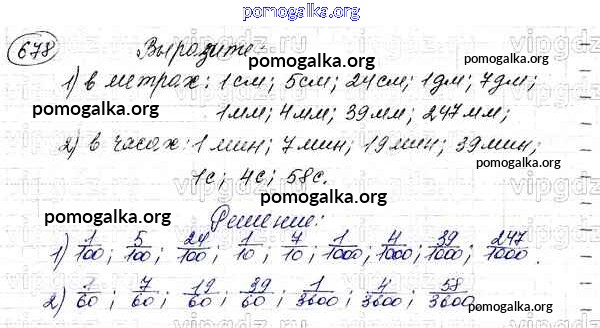 pomogalka.org
678 Выразите:
1) в метрах: 1 см; 5 см; 24 см; 1 дм; 7 дм;
pomogalka.org pomogalka.org
1 мм; 4 мм; 39 мм; 247 мм;
pomogalka.org
2) в часах: 1 мин; 7 мин; 19 мин; 39 мин;
pomogalka.org
1 с; 4 с; 58 с.
vipgdz.ru
pomogalka.org Решение: pomogalka.org
1) 1/100; 5/100; 24/100; 1/10; 7/10; 1/1000; 4/1000; 39/1000; 247/1000.
2) 1/60; 7/60; 19/60; 39/60; 1/3600; 4/3600; 58/3600
pomogalka.org pomogalka.org